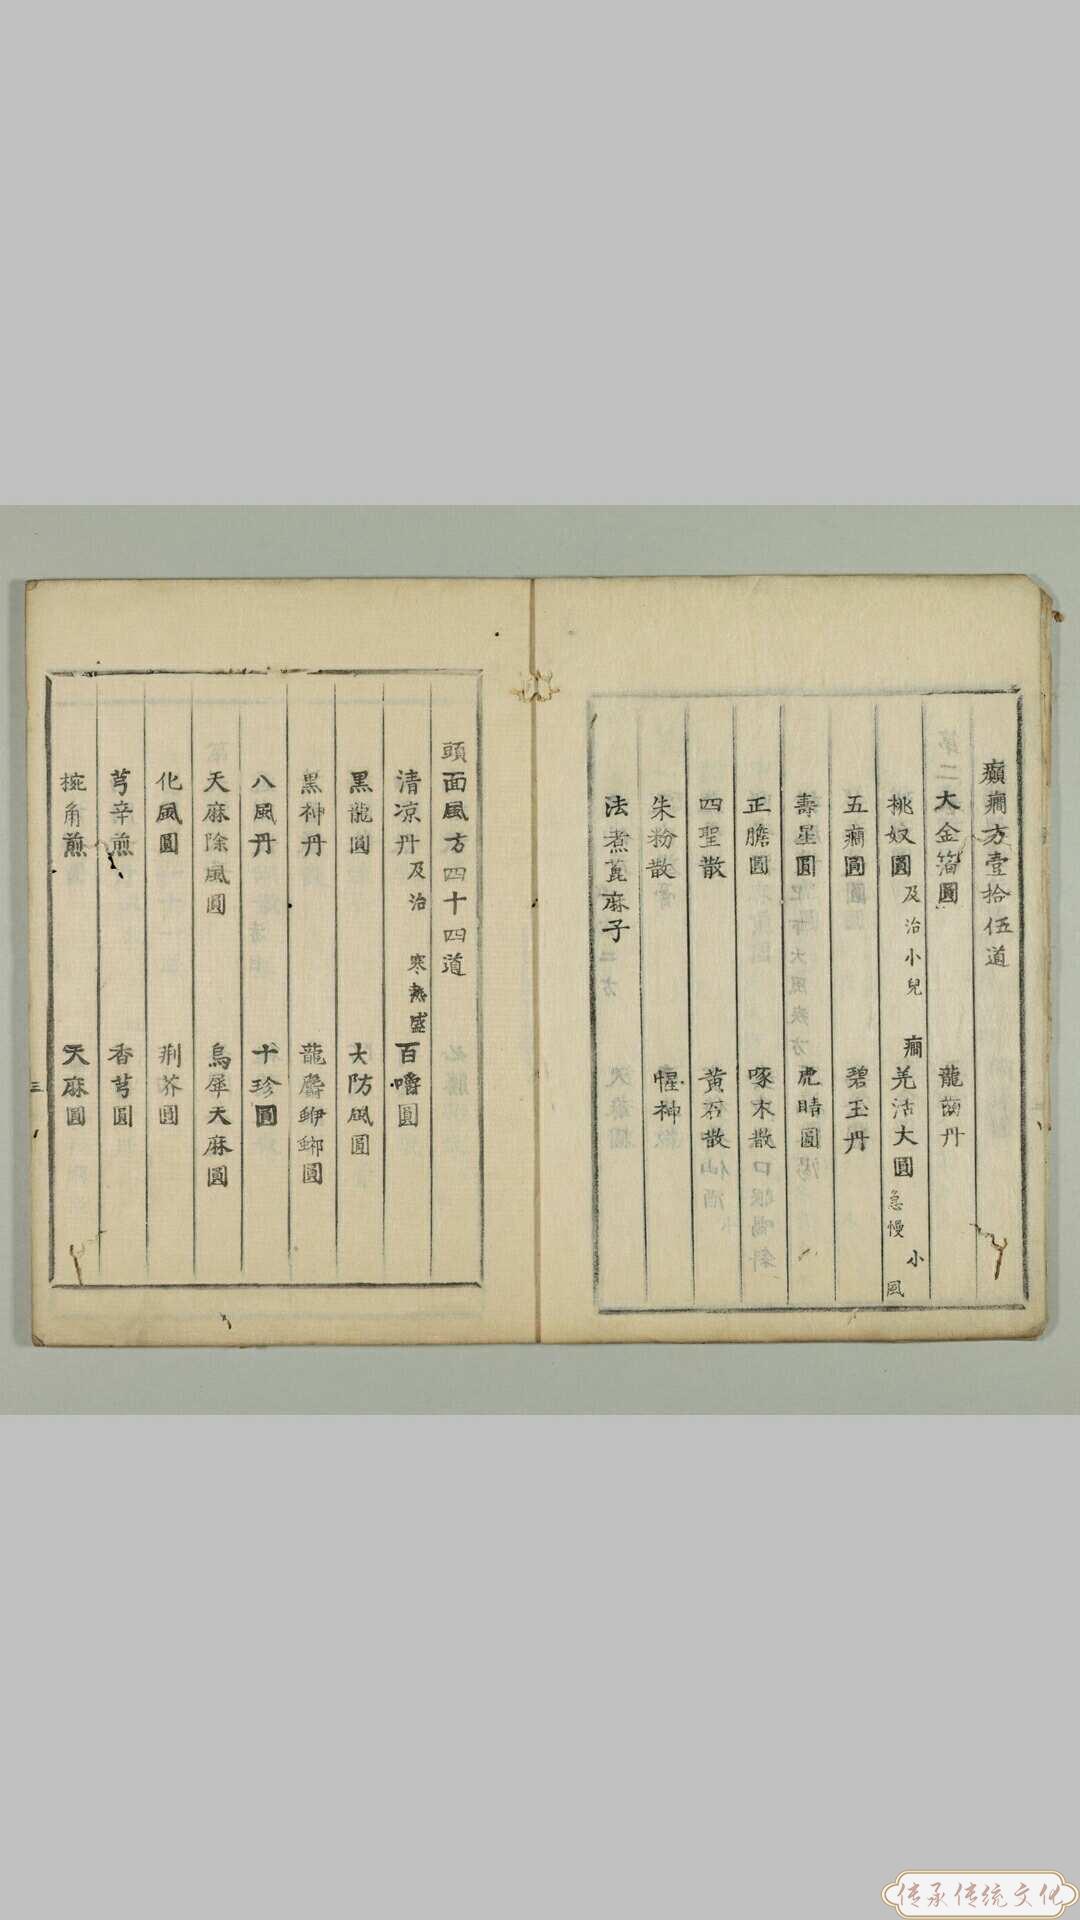 癲癎方壹拾伍道
大金箔圓 龍齒丹
桃奴圓 及治小兒癎 羌活大圓 小兒急慢風
五癎圓 碧玉丹
壽星圓 虎睛圓
正膽圓 啄木散
四聖散 黃石散
朱粉散 惺神
法煮蓖麻子
頭面風方四十四道
清凉丹 及治寒熱盛 百嚼圓
黑龍圓 大防風圓
黑神丹 龍麝
八風丹 十珍圓
天麻除風圓 烏犀天麻圓
化風圓 荆芥圓
芎辛煎 香芎圓
椀角煎 天麻圓
三
传承传统文化